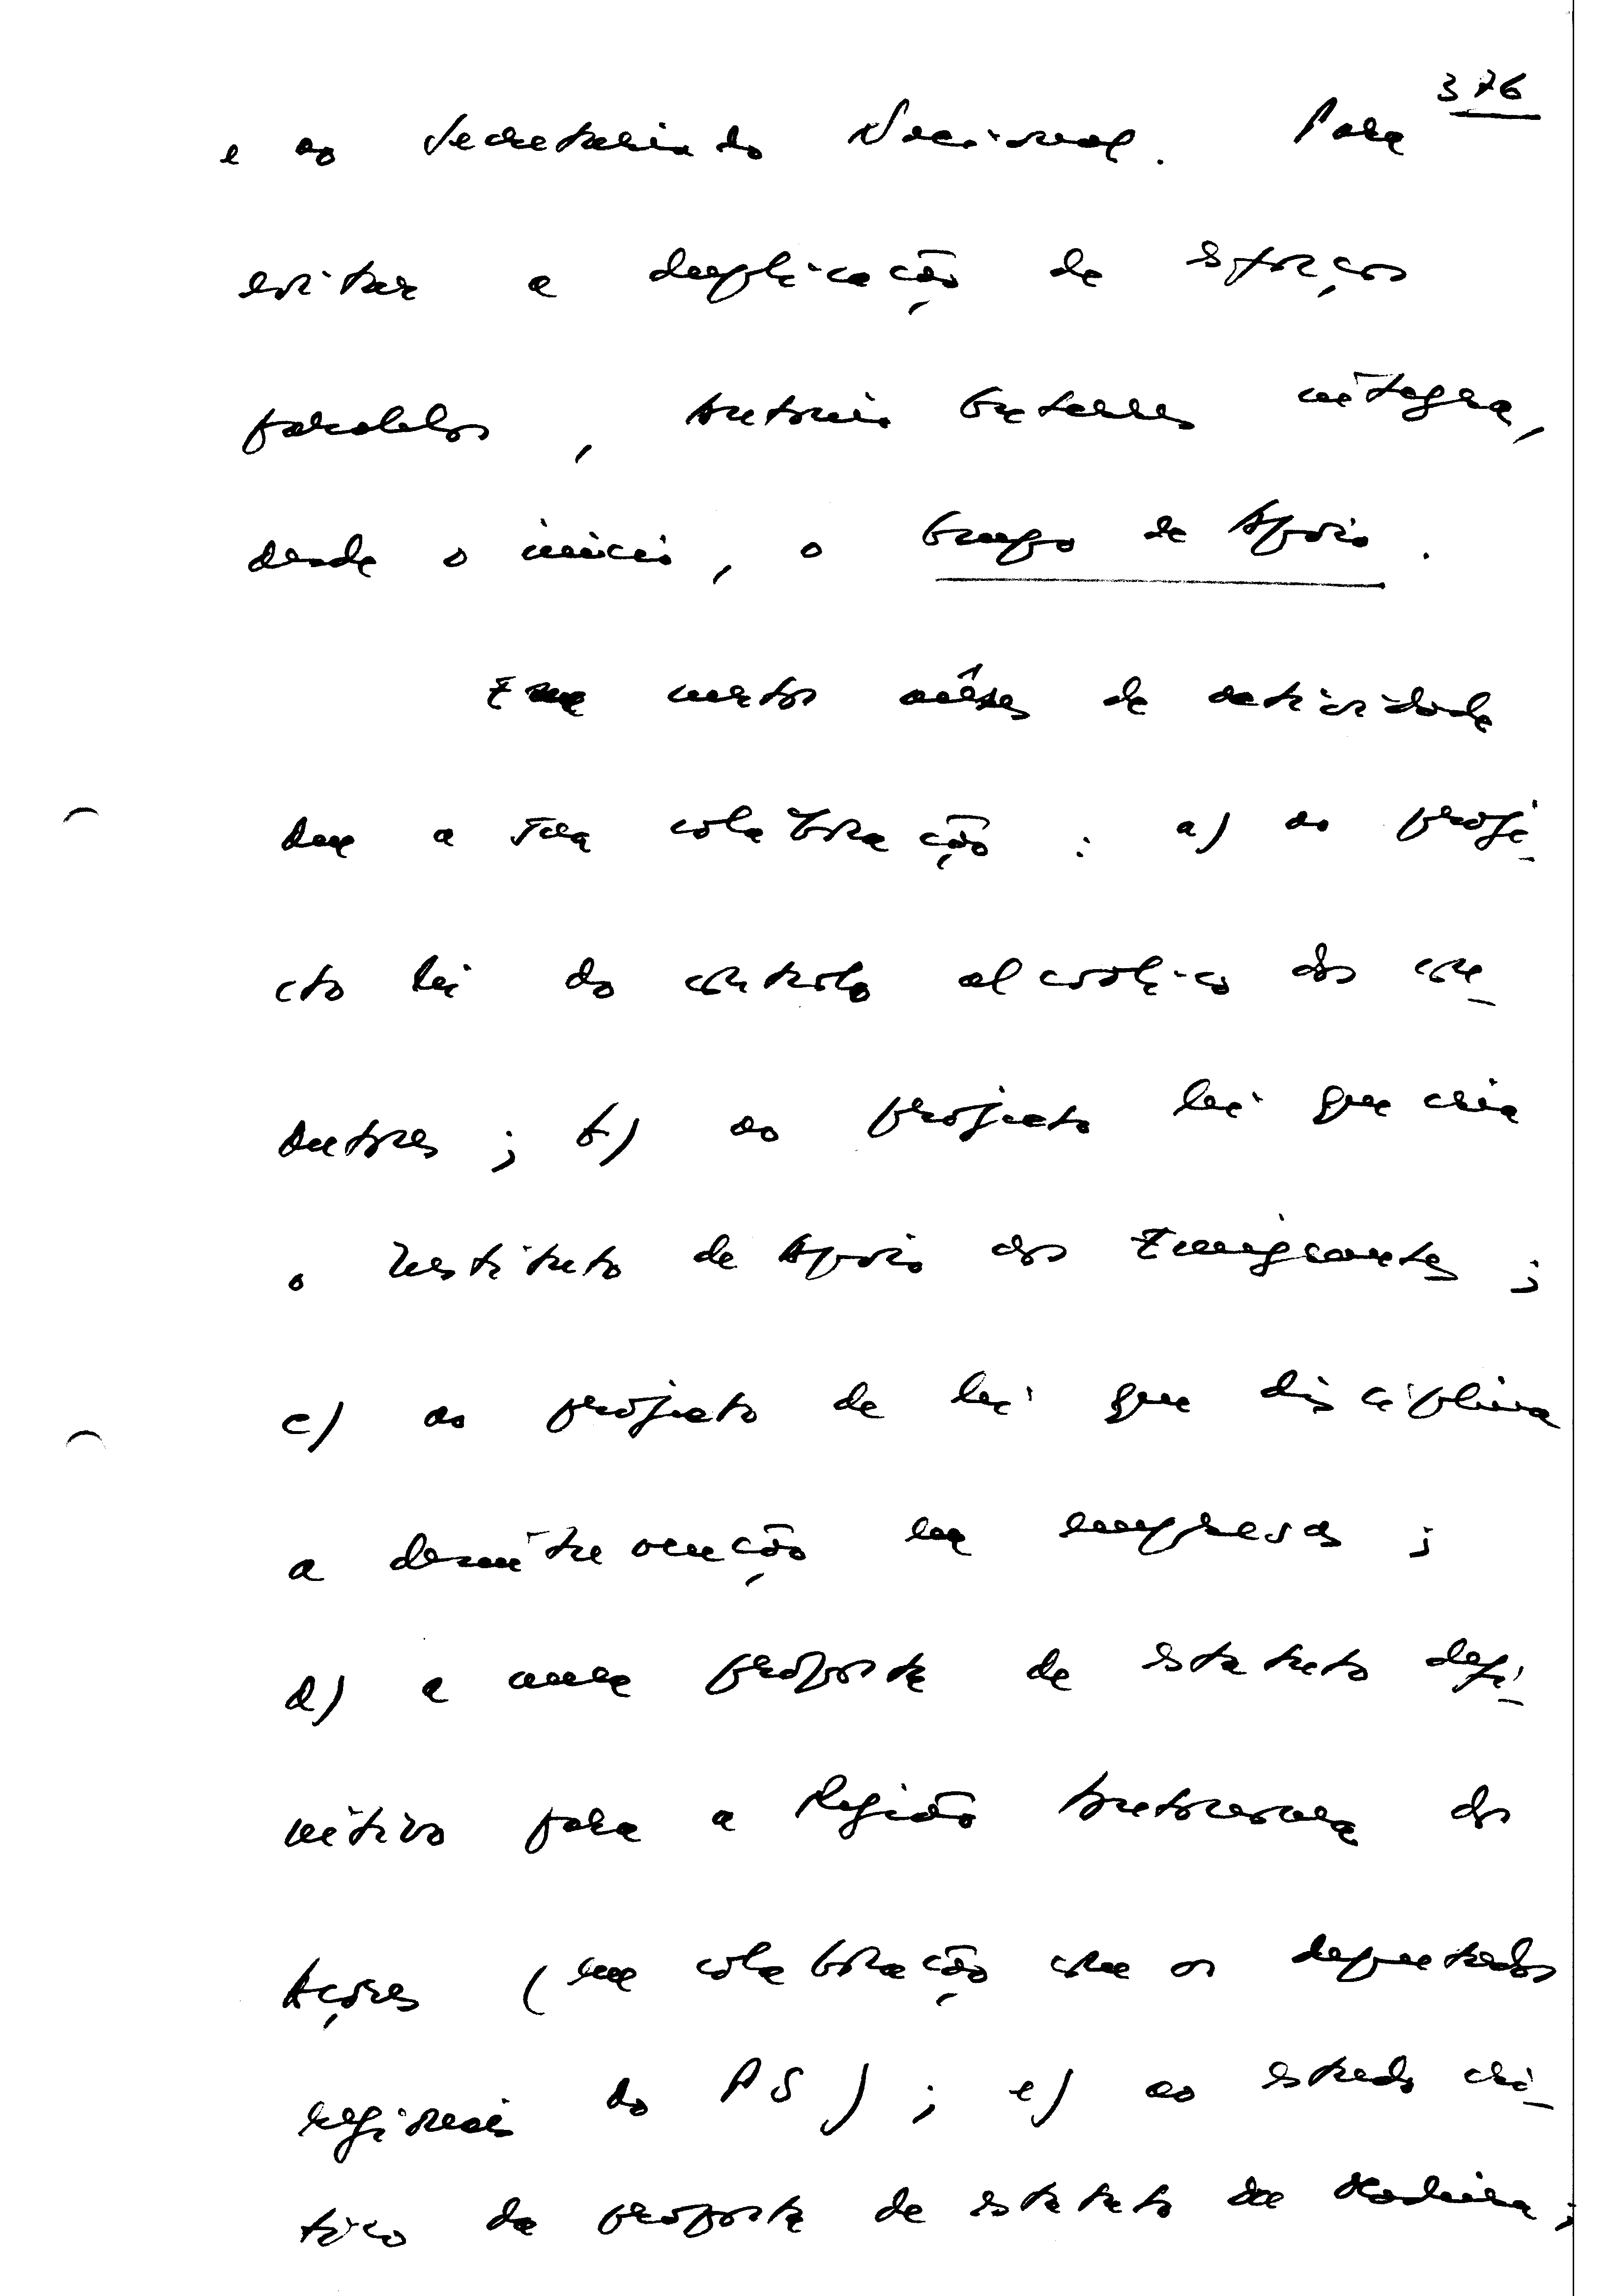 376
e ao Secretariado Nacional. Para
evitar a duplicação de esforços
paralelos, António Guterres integra,
desde o início, o Grupo de Apoio.
Em curtos mêses de actividade
deu a sua colaboração: a) ao proje-
cto lei do controlo alcoólico dos con-
dutores; b) ao projecto lei que cria
o Instituto de Apoio aos Emigrantes;
c) ao projecto de lei que disciplina
a desintervenção em empresas;
d) a uma proposta de estatuto defi-
nitivo para a Região Autónoma dos
Açores (em colaboração com os deputados
regionais do PS); e) ao estudo crí-
tico da proposta de estatuto da Madeira;